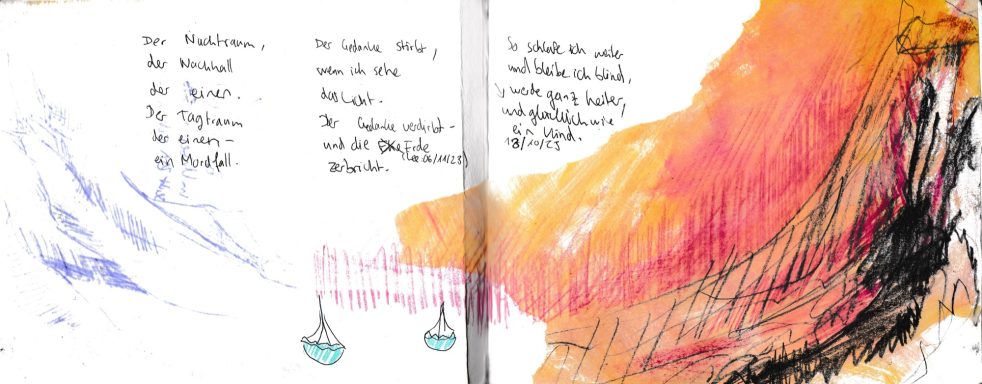 Der Nachtraum,
der Nachhall
der einen.
Der Tagtraum
der einen–
ein Mordfall.
Der Gedanke stirbt,
wenn ich sehe
das Licht.
Der Gedanke verdirbt–
und die Erde
06/11/23
zerbricht.
So schlafe ich weiter
und bleibe ich blind,
werde ganz heiter,
und glücklich wie
ein Kind.
18/10/23